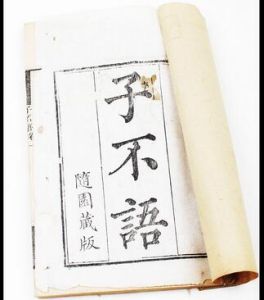 子不語
隨園藏版